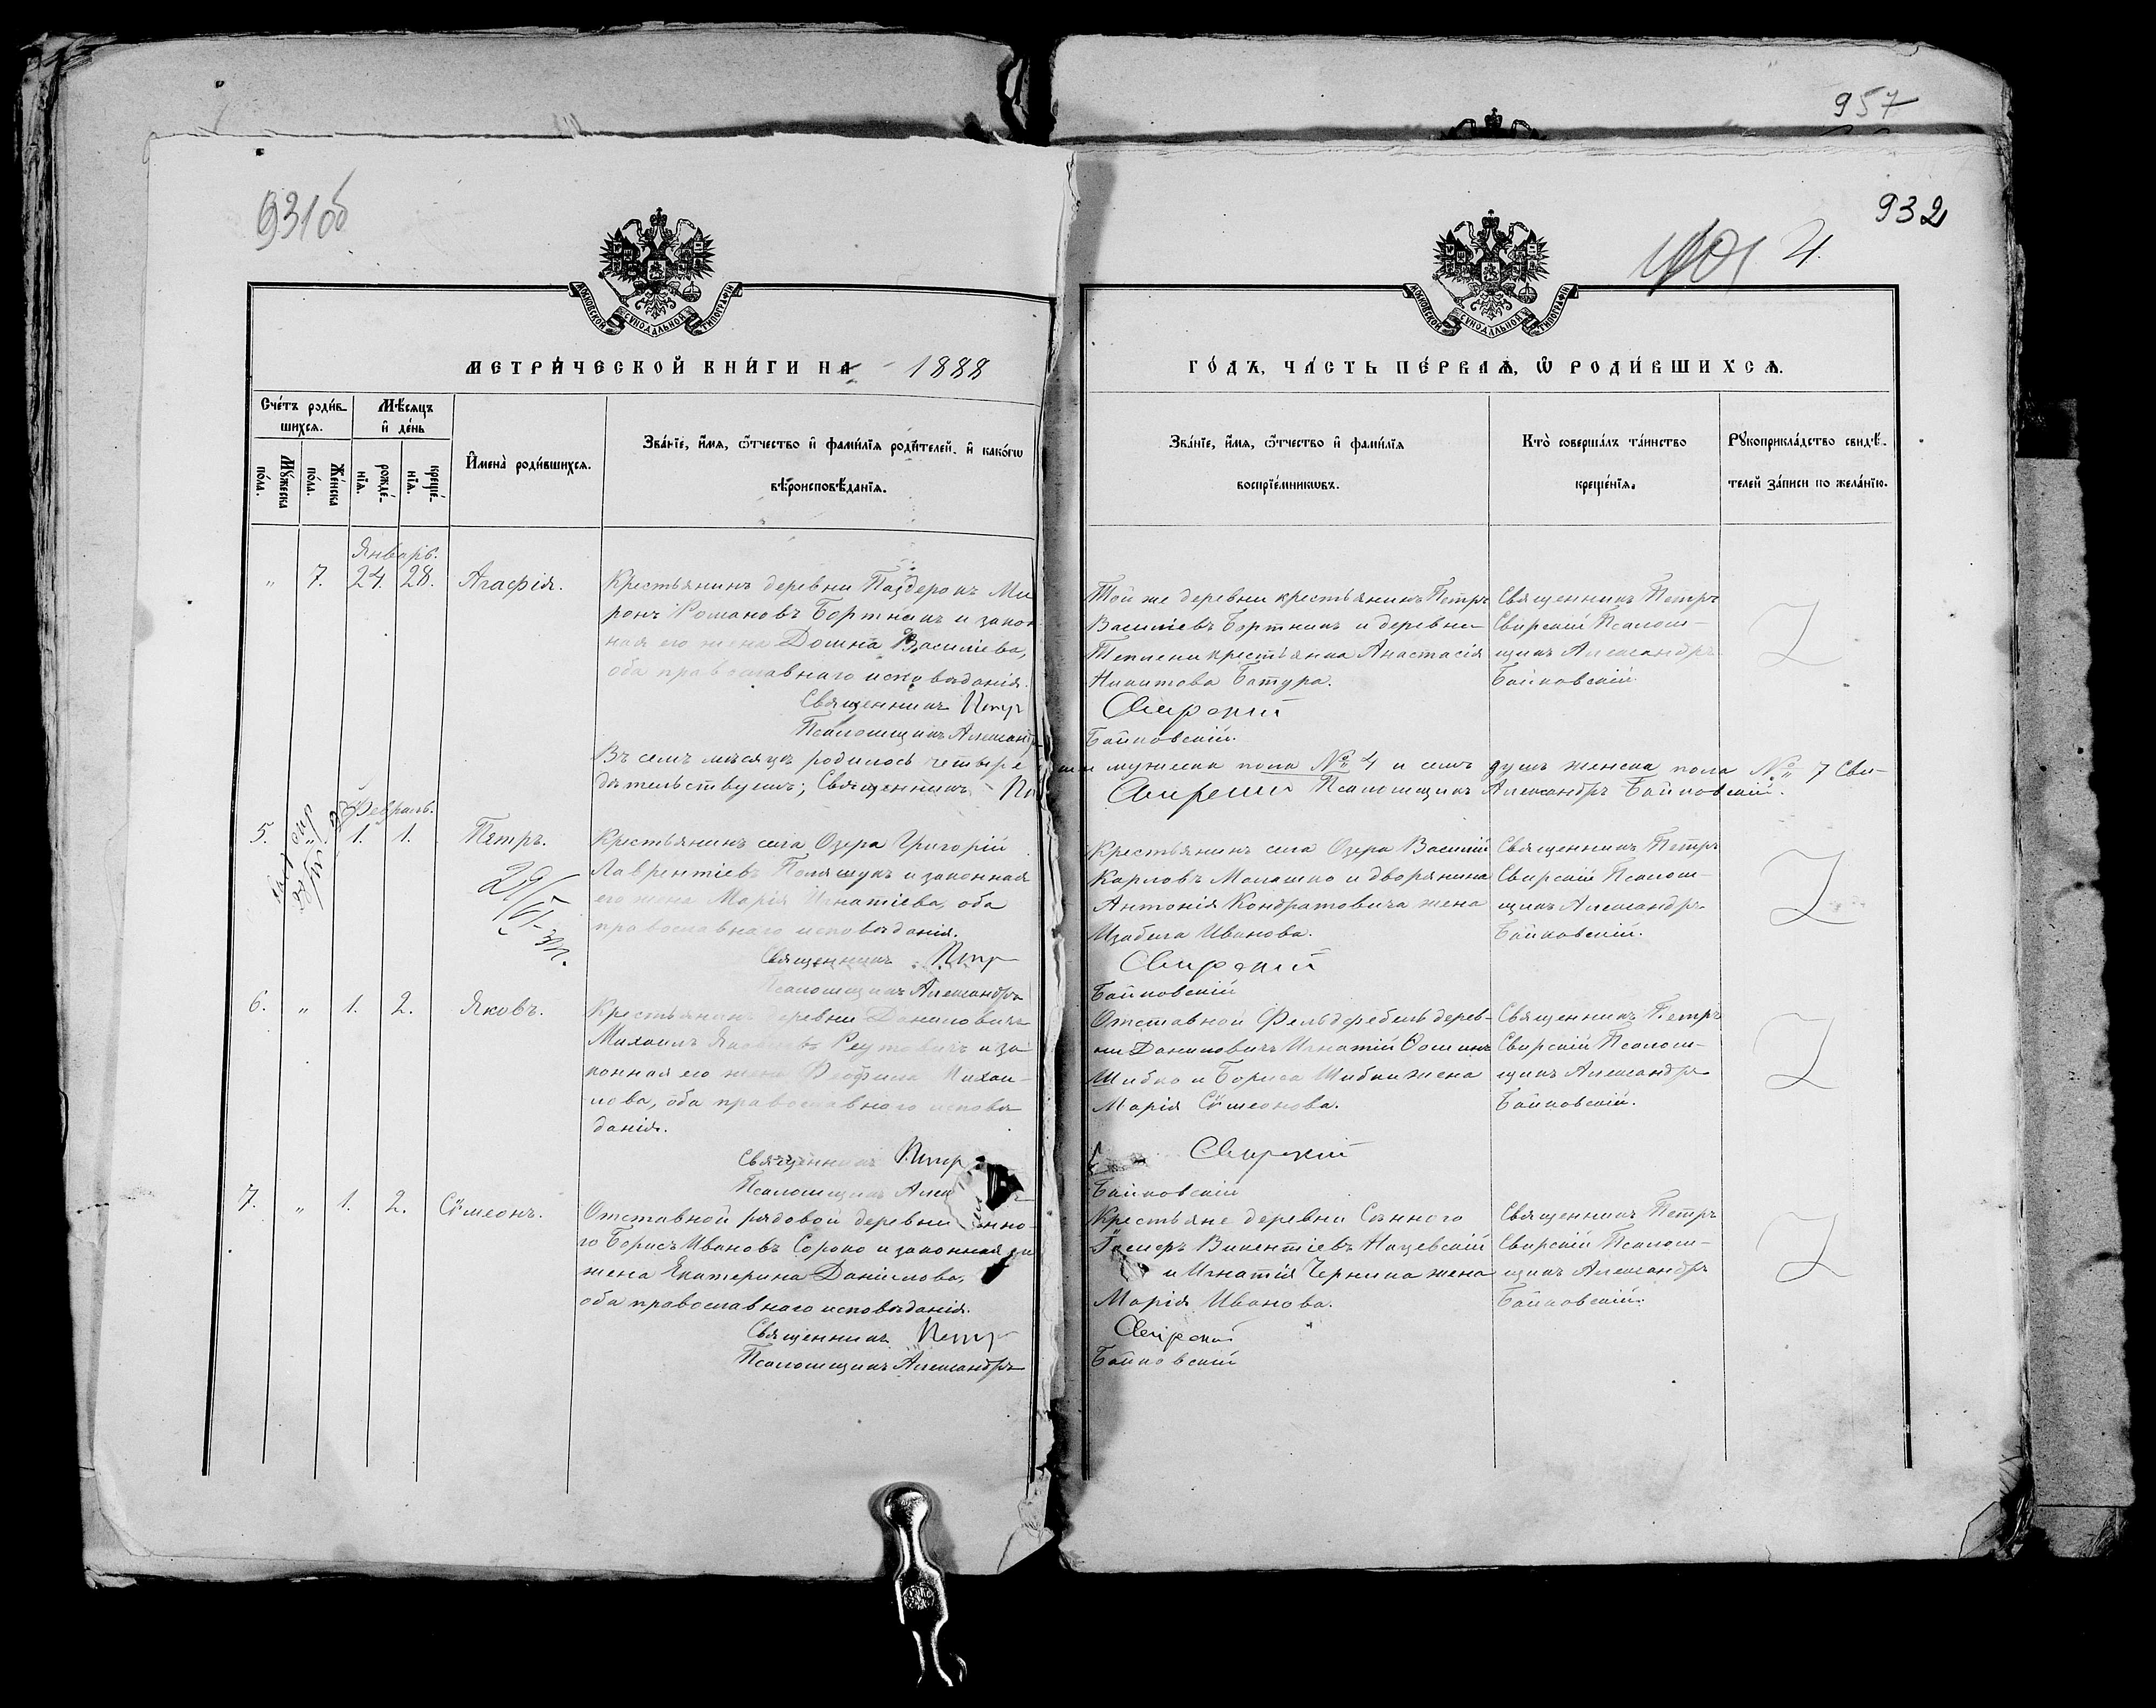 957
931об
932
4.
МОСКОВСКОЙ СѴНОДАЛЬНОЙ ТИПОГРАФІИ
МОСКОВСКОЙ СѴНОДАЛЬНОЙ ТИПОГРАФІИ
МЕТРИ́ЧЕСКОЙ КНИ́ГИ НА 1888
ГО́ДЪ, ЧА́СТЬ ПЕ́РВАѦ, Ѽ РОДИ́ВШИХСѦ.
Сче́тъ роди́вшихсѧ.
Мѣ́сѧцъ и҆ де́нь
Мꙋ́жеска по́ла.
Же́нска по́ла.
рожде́нїѧ.
креще́нїѧ.
И҆мена̀ роди́вшихсѧ.
Зва́нїе, и҆́мѧ, ѻ҆́тчество и҆ фами́лїѧ роди́телей, и҆ како́гѡ
вѣроисповѣ́данїѧ.
Зва́нїе, и҆́мѧ, ѻ҆́тчество и҆ фами́лїѧ
воспрїе́мникѡвъ.
Кто̀ соверша́лъ та́инство
креще́нїѧ.
Рꙋкоприкла́дство свидѣ́-
телей за́писи по жела́нїю.
Январь.
" 7. 24. 28. Агафія.
Крестьянинъ деревни Паздеронъ Ми
ронъ Романовъ Бортникъ и закон
ная его жена Домна Василіева,
оба православнаго исповѣданія.
Священникъ Петръ
Псаломщикъ Александръ
Той же деревни крестьянинъ Петръ
Василіевъ Бортникъ и деревни
крестьянка Анастасія
Никитова Батура.
Свирскій
Байковскій.
Священникъ Петръ
Свирскій Псалом-
щикъ Александръ
Байковскій.
Въ семъ мѣсяцѣ родилось четыре
мужеска пола № 4 и семь душъ женска пола № 7 Сви-
дѣтельствуемъ; Священникъ
Свирскій Псаломщикъ Александръ Байковскій.
Февраль.
5. " 1. 1. Петръ.
Крестьянинъ села Озера Григорій
Лаврентіевъ Полящукъ и законная
его жена Марія Игнатіева, оба
православнаго исповѣданія.
Священникъ Петръ
Псаломщикъ Александръ
Крестьянинъ села Озера Василій
Карповъ Малашко и дворянина
Антонія Кондратовича жена
Изабела Иванова.
Свирскій
Байковскій
Священникъ Петръ
Свирскій Псалом-
щикъ Александръ
Байковскій.
6. " 1. 2. Яковъ.
Крестьянинъ деревни Даниловичъ
Михаилъ Реутовичъ и за-
конная его жена Михаи-
лова, оба православнаго исповѣ
данія.
Священникъ Петръ
Псаломщикъ
Отставной Фельдфебель дерев-
ни Даниловичъ Игнатій Фоминъ
Шибко и Бориса Шибки жена
Марія Сѵмеонова.
Свирскій
Байковскій
Священникъ Петръ
Свирскій Псалом-
щикъ Александръ
Байковскій.
7. " 1. 2. Сѵмеонъ.
Отставной рядовой деревни
го Борисъ Ивановъ Сороко и законная
жена Екатерина Даніилова,
оба православнаго исповѣданія.
Священникъ Петръ
Псаломщикъ Александръ
Крестьяне деревни Сѣнного
Викентіевъ Нацевскій
и Игнатія Чернина жена
Марія Иванова.
Свирскій
Байковскій
Священникъ Петръ
Свирскій Псалом-
щикъ Александръ
Байковскій.